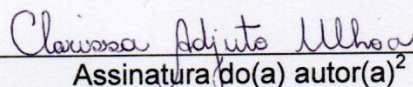 Clarissa Adjuto Ulhoa
Assinatura do(a) autor(a)²